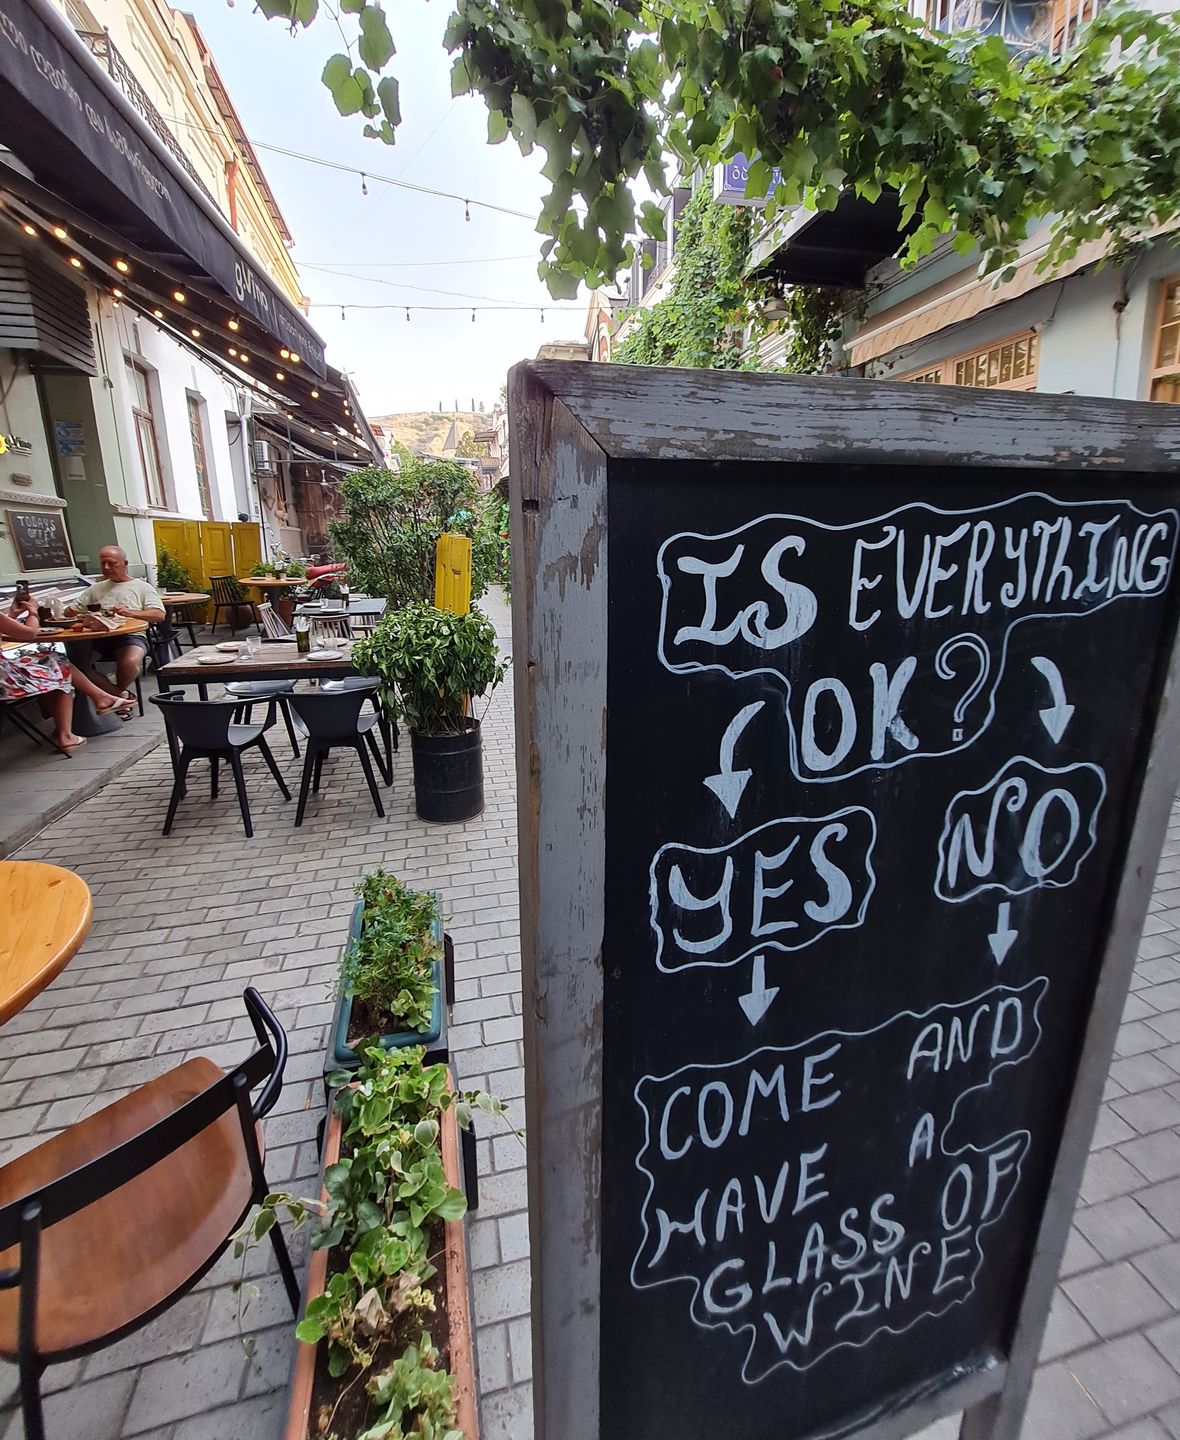 g.Vino
TODAY'S
OFFER
IS EVERYTHING
OK?
YES NO
COME AND
HAVE A
GLASS OF
WINE